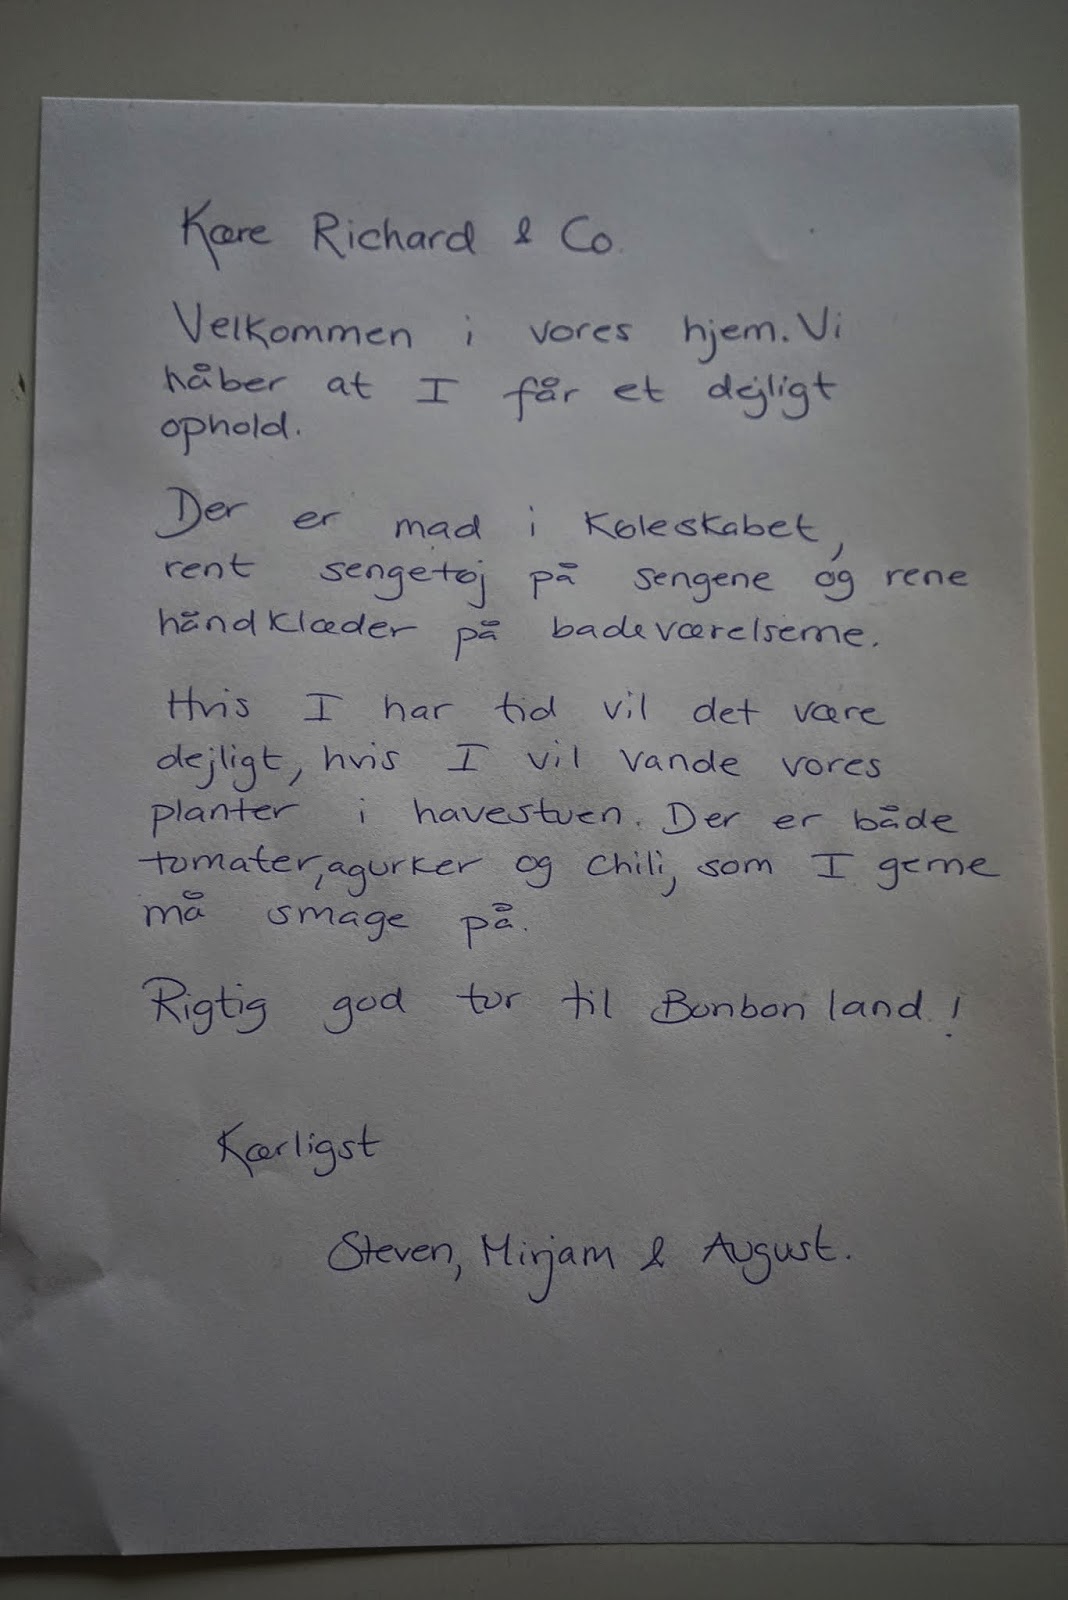 Kære Richard & Co.
Velkommen i vores hjem. Vi
håber at I får et dejligt
ophold.
Der er mad i køleskabet,
rent sengetøj på sengene og rene
håndklæder på badeværelserne.
Hvis I har tid vil det være
dejligt, hvis I vil vande vores
planter i havestuen. Der er både
tomater, agurker og chili, som I gerne
må smage på.
Rigtig god tur til Bonbon land!
Kærligst
Steven, Mirjam & August.